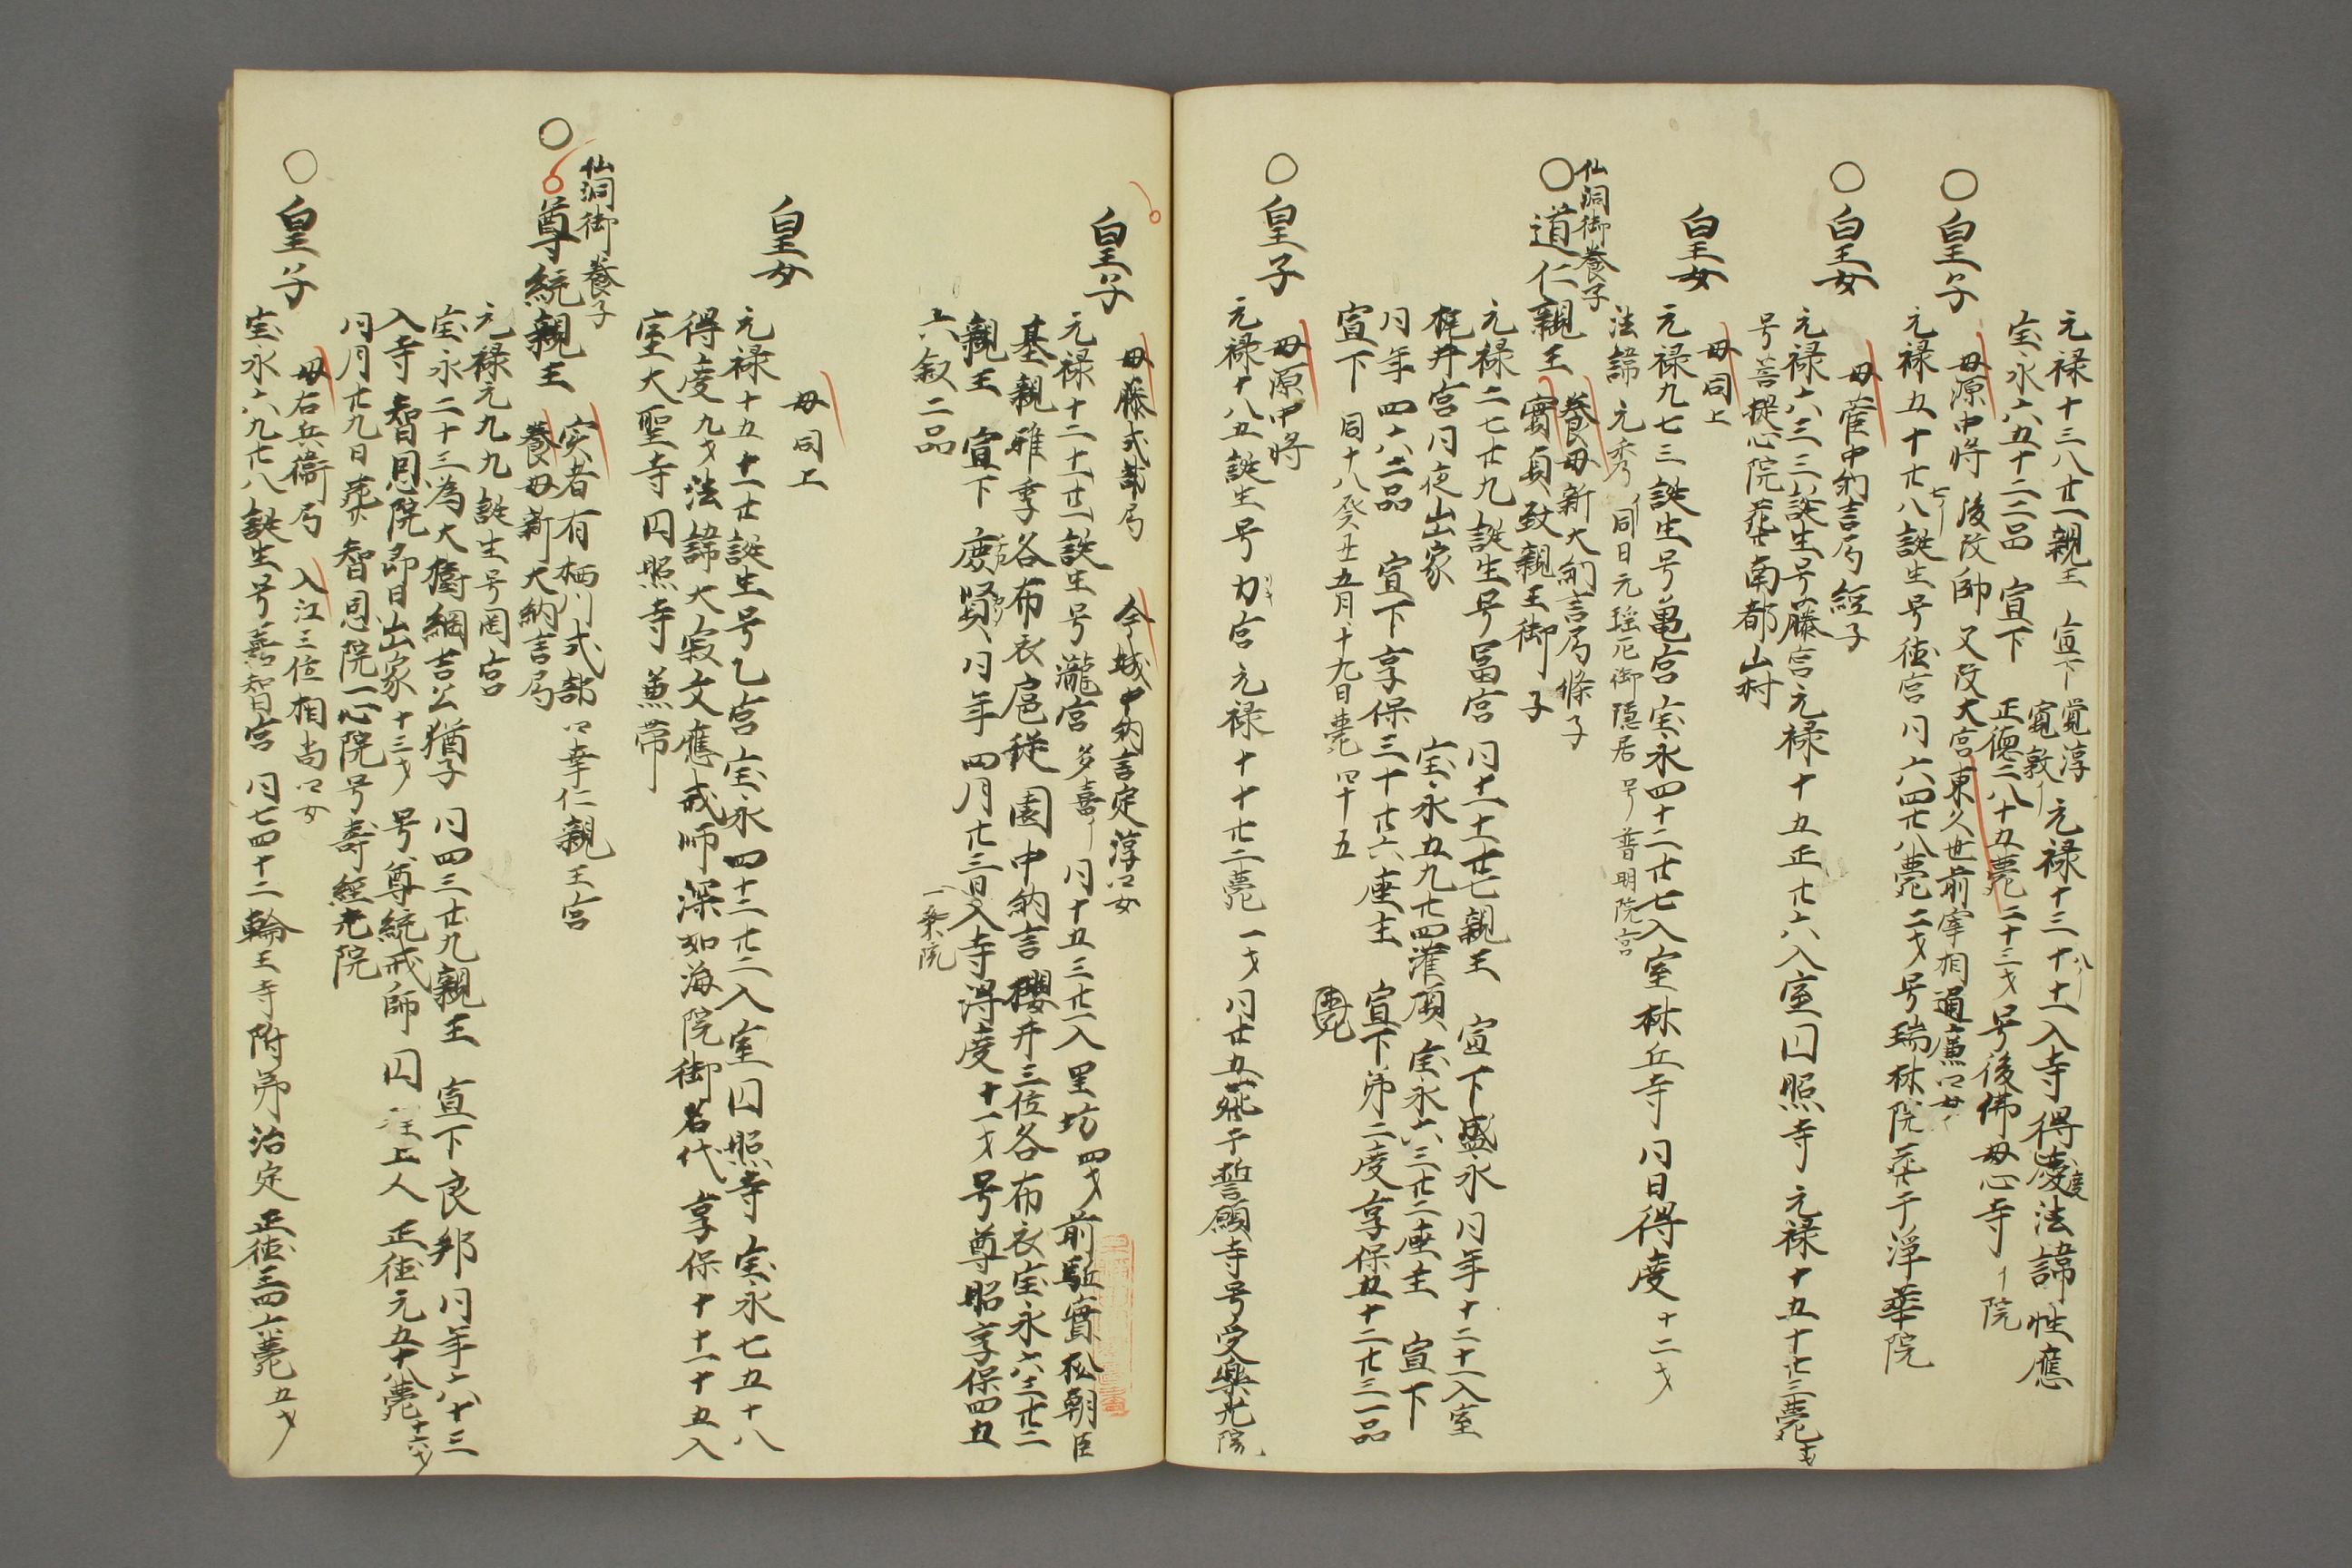 元禄十三八廿一親王 宣下 覚淳 寛敦 元禄十三十十一入寺得度法諱性應
宝永六五十二二品 宣下 正徳三八十五薨 二十三才 号後佛母心寺 院
○皇子 母源中将 後改帥 又改大宮 東久世前宰相通廉口女
元禄五十廿八誕生号徳宮 同六四廿八薨二才号瑞林院葬于浄華院
○皇女 母菅中納言局 經子
元禄六三三誕生号藤宮元禄十五正廿六入室圓照寺 元禄十五十廿三薨
号菩提心院葬南都山村
皇女 母同上
元禄九七三誕生号亀宮宝永四十二廿七入室林丘寺 同日得度十二才
法諱 元秀 同日元瑶尼御隠居 号普明院宮
仙洞御養子
○道仁親王 養母新大納言局條子
實貞致親王御子
元禄二七廿九誕生号冨宮 同十一十廿七親王 宣下盛永 同年十二十一入室
梶井宮同夜出家 宝永五九廿四灌頂 宝永六三廿二座主 宣下
同年四六二品 宣下享保三十廿六座主 宣下第二度享保五十二廿三一品
宣下 同十八癸丑五月十九日薨 四十五
○皇子 母源中将
元禄十八五誕生号力宮 元禄十十廿二薨一才同廿五葬于誓願寺号受樂光院
皇子 母藤式部局 今城中納言定淳口女
元禄十二十一廿一誕生号瀧宮 多喜 同十五三廿一入里坊四才前駈實松朝臣
基親雅季各布衣扈従園中納言櫻井三位各布衣宝永六三廿二
親王 宣下 庶賢 同年四月廿三日入寺得度十一才号尊昭享保四五
六叙二品 一乗院
皇女 母同上
元禄十五十一廿誕生号乙宮宝永四十二廿二入室圓照寺宝永七五十八
得度九才法諱大寂文應戒師深如海院御名代 享保十十一十五入
室大聖寺圓照寺兼帯
仙洞御養子
○尊統親王 実者有栖川式部口幸仁親王宮
養母新大納言局
元禄元九九誕生号罔宮
宝永二十三為大樹綱吉公猶子 同四三廿九親王 宣下良邦同年六十三
入寺智恩院即日出家十三才 号尊統戒師 圓 上人 正徳元五十八薨十六才
同月廿九日葬智恩院一心院号壽經光院
○皇子 母右兵衛局 入江三位相尚口女
宝永六九廿八誕生号嘉智宮 同七四十二輪王寺附弟治定正徳三四六薨五才